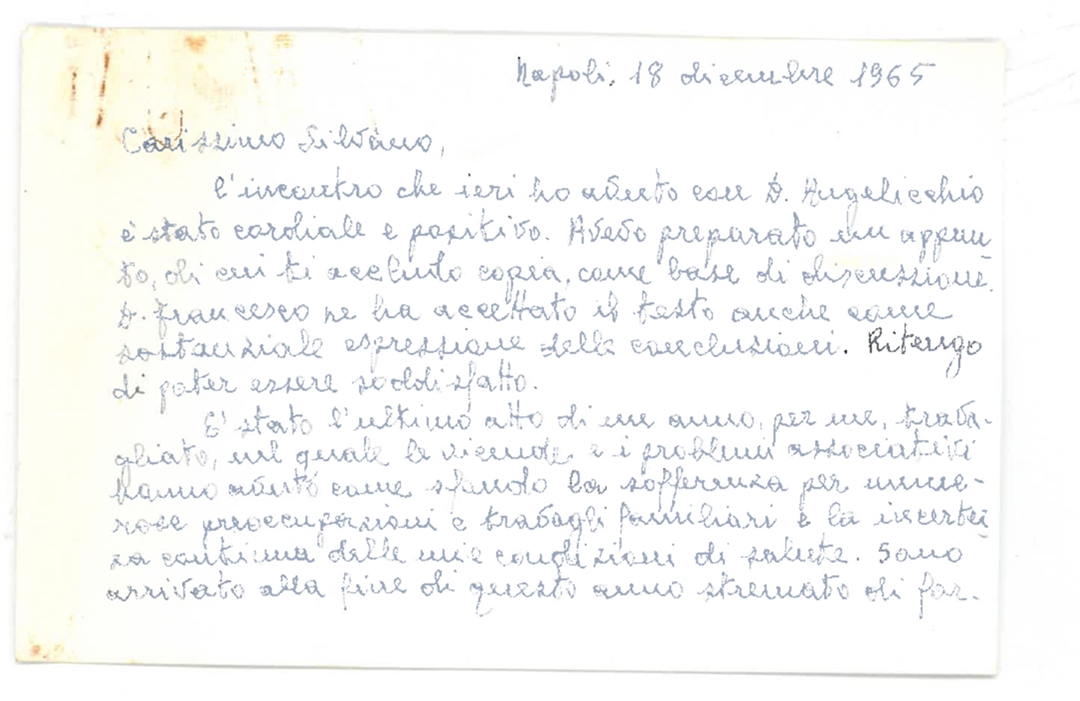 Napoli, 18 dicembre 1965
Carissimo Silvano,
l'incontro che ieri ho avuto con D. Angelicchio
è stato cordiale e positivo. Avevo preparato un appun
to, di cui ti accludo copia, come base di discussione.
D. Francesco ne ha accettato il testo anche come
sostanziale espressione delle conclusioni. Ritengo
di poter essere soddisfatto.
E' stato l'ultimo atto di un anno, per me, trava-
gliato, nel quale le vicende e i problemi associativi
hanno avuto come sfondo la sofferenza per nume-
rose preoccupazioni e travagli familiari e la incertez
za continua delle mie condizioni di salute. Sono
arrivato alla fine di questo anno stremato di for-